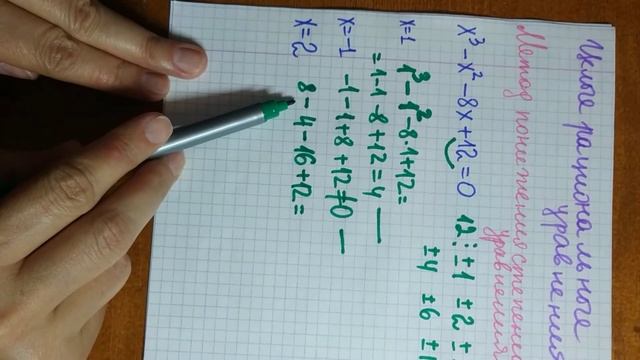 Целые рациональные
уравнения
Метод понижения степени
уравнения
x³ - x² - 8x + 12 = 0 12 ⋮ ±1 ±2 ±
±4 ±6 ±1
x = 1 1³ - 1² - 8·1 + 12 =
= 1 - 1 - 8 + 12 = 4 —
x = -1 -1 - 1 + 8 + 12 ≠ 0 —
x = 2 8 - 4 - 16 + 12 =